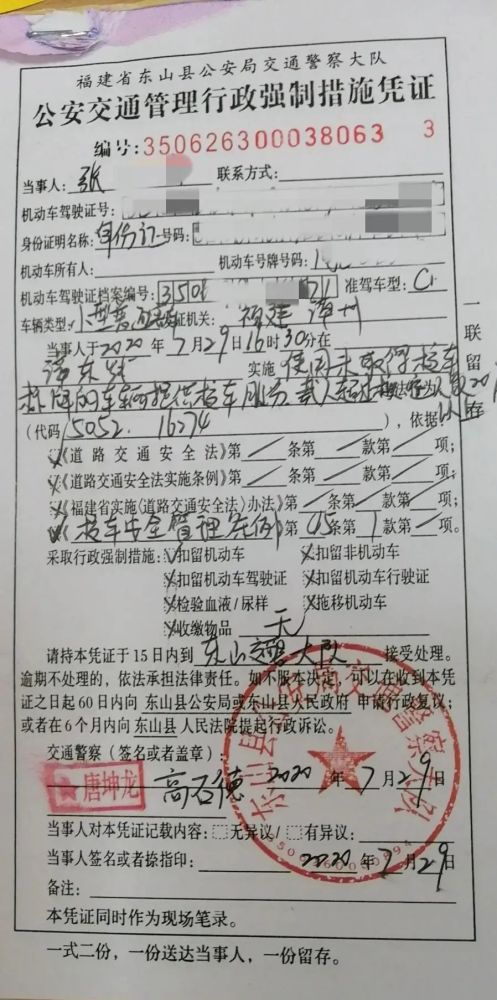 福建省东山县公安局交通警察大队
公安交通管理行政强制措施凭证
编号:350626300038063 3
当事人:张 联系方式:
机动车驾驶证号:
身份证明名称:身份证 号码:
机动车所有人: 机动车号牌号码:
机动车驾驶证档案编号:3506 71 准驾车型:C1
车辆类型:小型普通 证机关:福建漳州
当事人于2020年7月29日16时30分在
漳东线 实施 使用未取得校车
标牌的车辆提供校车服务 载人超过
(代码 5052. 16274 ),依据:
《道路交通安全法》第 条第 款第 项;
《道路交通安全法实施条例》第 条第 款第 项;
《福建省实施〈道路交通安全法〉办法》第 条第 款第 项;
《校车安全管理条例》第45条第1款第 项。
采取行政强制措施: 扣留机动车 扣留非机动车
扣留机动车驾驶证 扣留机动车行驶证
检验血液/尿样 拖移机动车
收缴物品 无
请持本凭证于15日内到 东山交警大队 接受处理。
逾期不处理的,依法承担法律责任。如不服本决定,可以在收到本凭
证之日起60日内向 东山县公安局或东山县人民政府 申请行政复议;
或者在6个月内向 东山县 人民法院提起行政诉讼。
交通警察(签名或者盖章):
唐坤龙 高石德 2020年7月29日
当事人对本凭证记载内容: 无异议/ 有异议:
当事人签名或者捺指印: 2020年7月29日
备注:
本凭证同时作为现场笔录。
一式二份,一份送达当事人,一份留存。
一联留存
东山县公安局交通警察大队